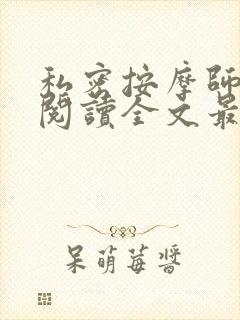 私密按摩師
閱讀全文最
呆萌莓醬